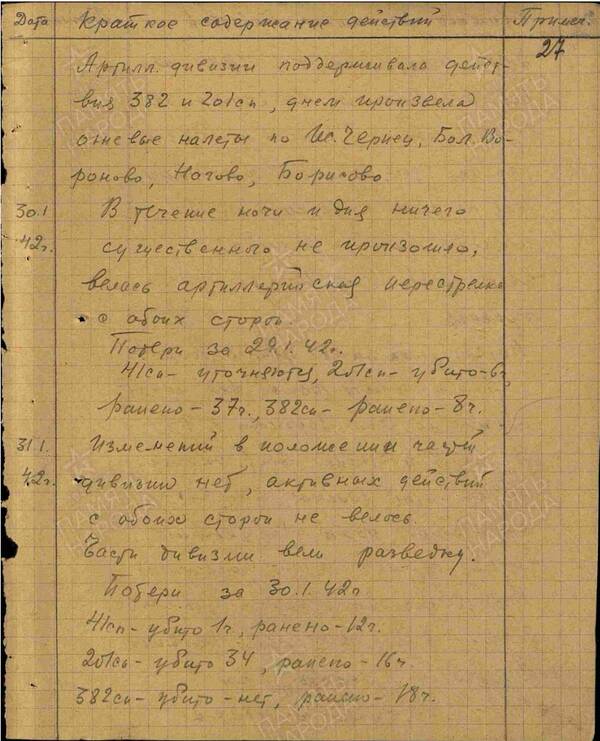 Дата Краткое содержание действий Примеч.
27
Артилл. дивизии поддерживала дейст-
вия 382 и 201сп, днем произвела
огневые налеты по Ис. Чернец, Бол. Во-
роново, Ногово, Борисово
30.1 В течение ночи и дня ничего
42г. существенного не произошло,
велась артиллерийская перестрелка
с обоих сторон.
Потери за 29.1.42г.
41сп - уточняются, 201сп - убито - 6ч,
ранено - 37ч., 382сп - ранено - 8ч.
31.1. Изменений в положении частей
42г. дивизии нет, активных действий
с обоих сторон не велось.
Части дивизии вели разведку.
Потери за 30.1.42г
41сп - убито 1ч, ранено - 12ч.
201сп - убито 3ч, ранено - 16ч
382сп - убито - нет, ранено - 18ч.
ПАМЯТЬ НАРОДА